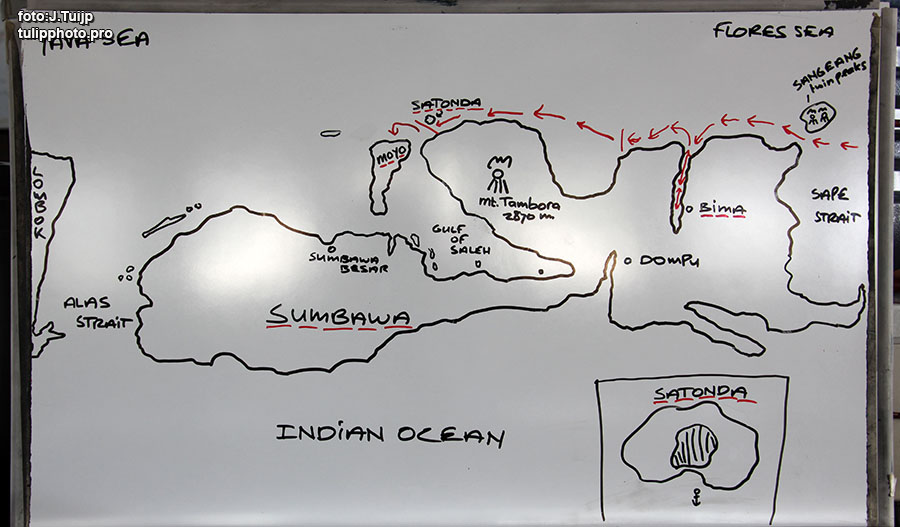 foto:J.Tuijp
tulipphoto.pro
JAVA SEA
FLORES SEA
SANGEANG
twin peaks
SATONDA
MOYO
LOMBOK
Mt. Tambora
2870 m.
SAPE
STRAIT
BIMA
GULF
OF
SALEH
SUMBAWA
BESAR
DOMPU
ALAS
STRAIT
SUMBAWA
SATONDA
INDIAN OCEAN